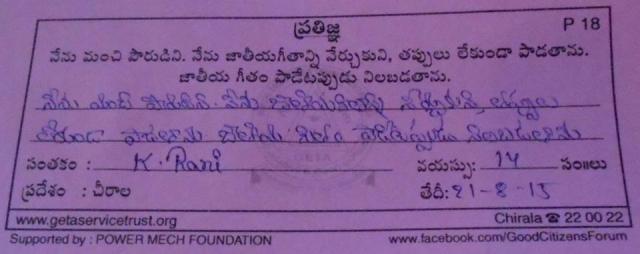 ప్రతిజ్ఞ P 18
నేను మంచి పౌరుడిని. నేను జాతీయగీతాన్ని నేర్చుకుని, తప్పులు లేకుండా పాడతాను.
జాతీయ గీతం పాడేటప్పుడు నిలబడతాను.
నేను మంచి పౌరుడిని. నేను జాతీయగీతాన్ని నేర్చుకుని తప్పులు
లేకుండా పాడతాను జాతీయ గీతం పాడేటప్పుడు నిలబడతాను
సంతకం : K. Rani వయస్సు: 14 సం॥లు
ప్రదేశం : చీరాల తేదీ: 21-8-15
www.getaservicetrust.org Chirala ☎ 22 00 22
Supported by : POWER MECH FOUNDATION www.facebook.com/GoodCitizensForum